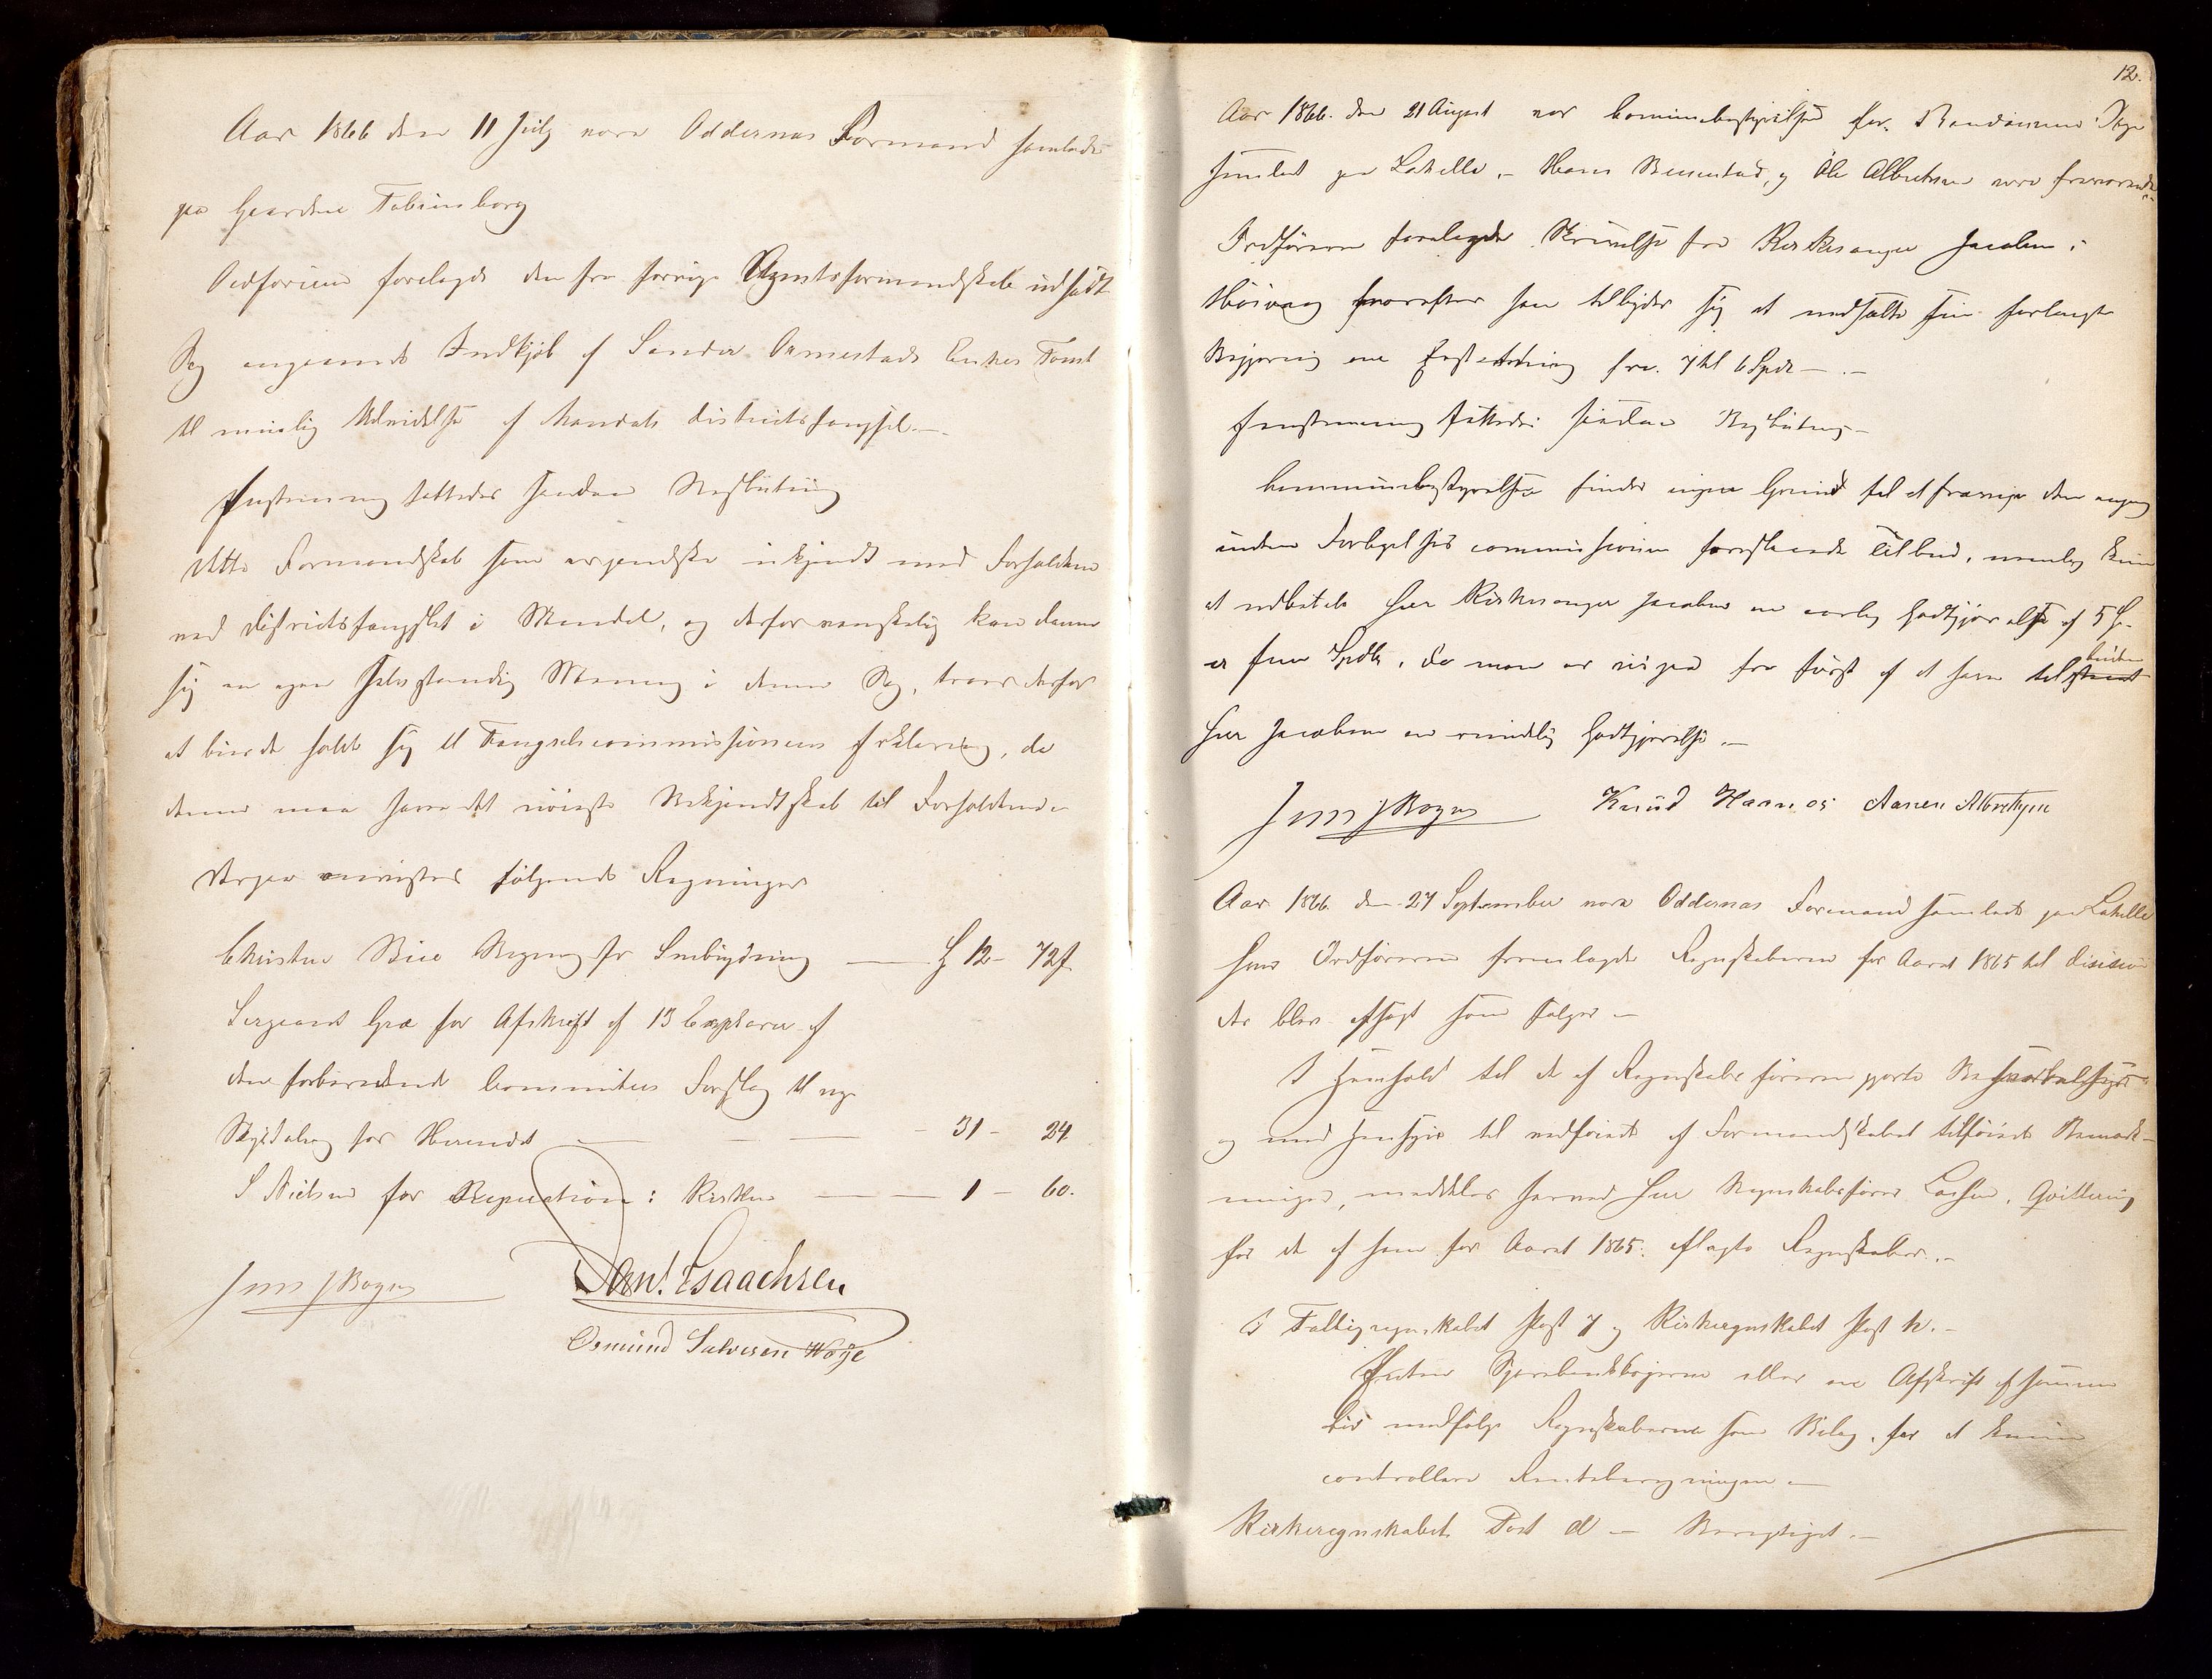 Aar 1866 den 11 July vare Oddernæs Formænd samlede
paa Gaarden Tobienborg
Ordføreren forelagde den fra forrige Repræsentantskab udsatte
Sag angaaende Indkjøb af Sander Ormestads Enkes Tomt
til muelig Udvidelse af Mandals Districtsfængsel.
Enstemmig fattedes saadan Beslutning
Dette Formandskab som er ganske ukjendt med Forholdene
ved Districtsfængslet i Mandal, og derfor vanskelig kan danne
sig en egen selvstændig Mening i denne Sag, troer derfor
at burde holde sig til Fængselscommissionens Erklæring, da
denne maa have det nøieste Bekjendtskab til Forholdene
Derpaa anvistes følgende Regninger
Christen Bie Regning for Snebrydning — 12 - 72 s
Sergeant Gra for Afskrift af 13 Exemplarer af
den forberedende Committees Forslag til nye
Skydslag for Herredet — 31 - 24
S Nielsen for Reperation i Kirken — 1 - 60.
Jens J Bogen Dan! Isaachsen
Osmund Salvesen Woye
12.
Aar 1866. den 21 August var Communebestyrelsen for Randøsund Sogn
samlet paa Lahelle. - Hans Benestad, og Ole Albretsen vare fraværende.
Ordføreren forelagde Skrivelse fra Kirkesanger Jacobsen i
Høivaag hvorefter han tilbyder sig at nedsætte sin forlangte
Begjæring om Erstatning fra 7 til 6 Spdr —.—
Enstemmig fattedes saadan Beslutning —
Communebestyrelsen finder ingen Grund til at fravige den engang
inden Forligelses commissionen foreslaaede Tilbud, nemlig kun
at udbetale Herr Kirkesanger Jacobsen en aarlig Godtgjørelse af 5
er fem Spdlr, da man er uigaaet fra først af at have tilstaaet buden
Herr Jacobsen en rimelig Godtgjørelse. —
Jens J Bogen Knud Hæsnæs Aanen Albretsen
Aar 1866. den 27 September vare Oddernæs Formænd samlede paa Lahelle
hvor Ordføreren fremlagde Regnskaberne for Aaret 1865 til Disision
der blev afsagt som følger —
I Henhold til de af Regnskabsføreren gjorte Besvarelser
og med Hensyn til vedføiede af Formandskabet tilføiede Bemærk-
ninger, meddeles herved Herr Regnskabsfører Larsen, Qvittering
for de af ham for Aaret 1865. aflagte Regnskaber. —
I Fattigregnskabet Post 7 og Kirkeregnskabet Post k. —
Enten Sparebankbøgerne eller en Afskrift af samme
bør medfølge Regnskaberne som Bilag, for at kunne
controllere Renteberegningen —
Kirkeregnskabet Post d — Berigtiget. —